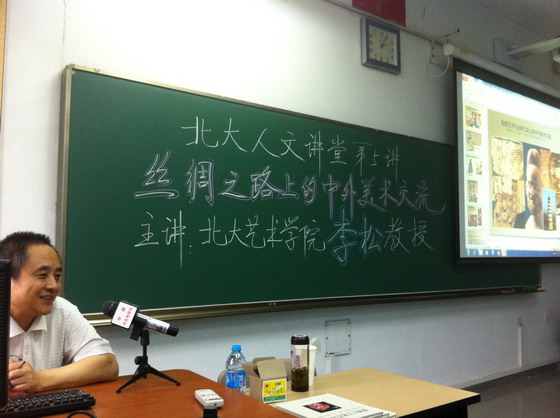 北大人文讲堂第5讲
丝绸之路上的中外美术交流
主讲:北大艺术学院 李松教授